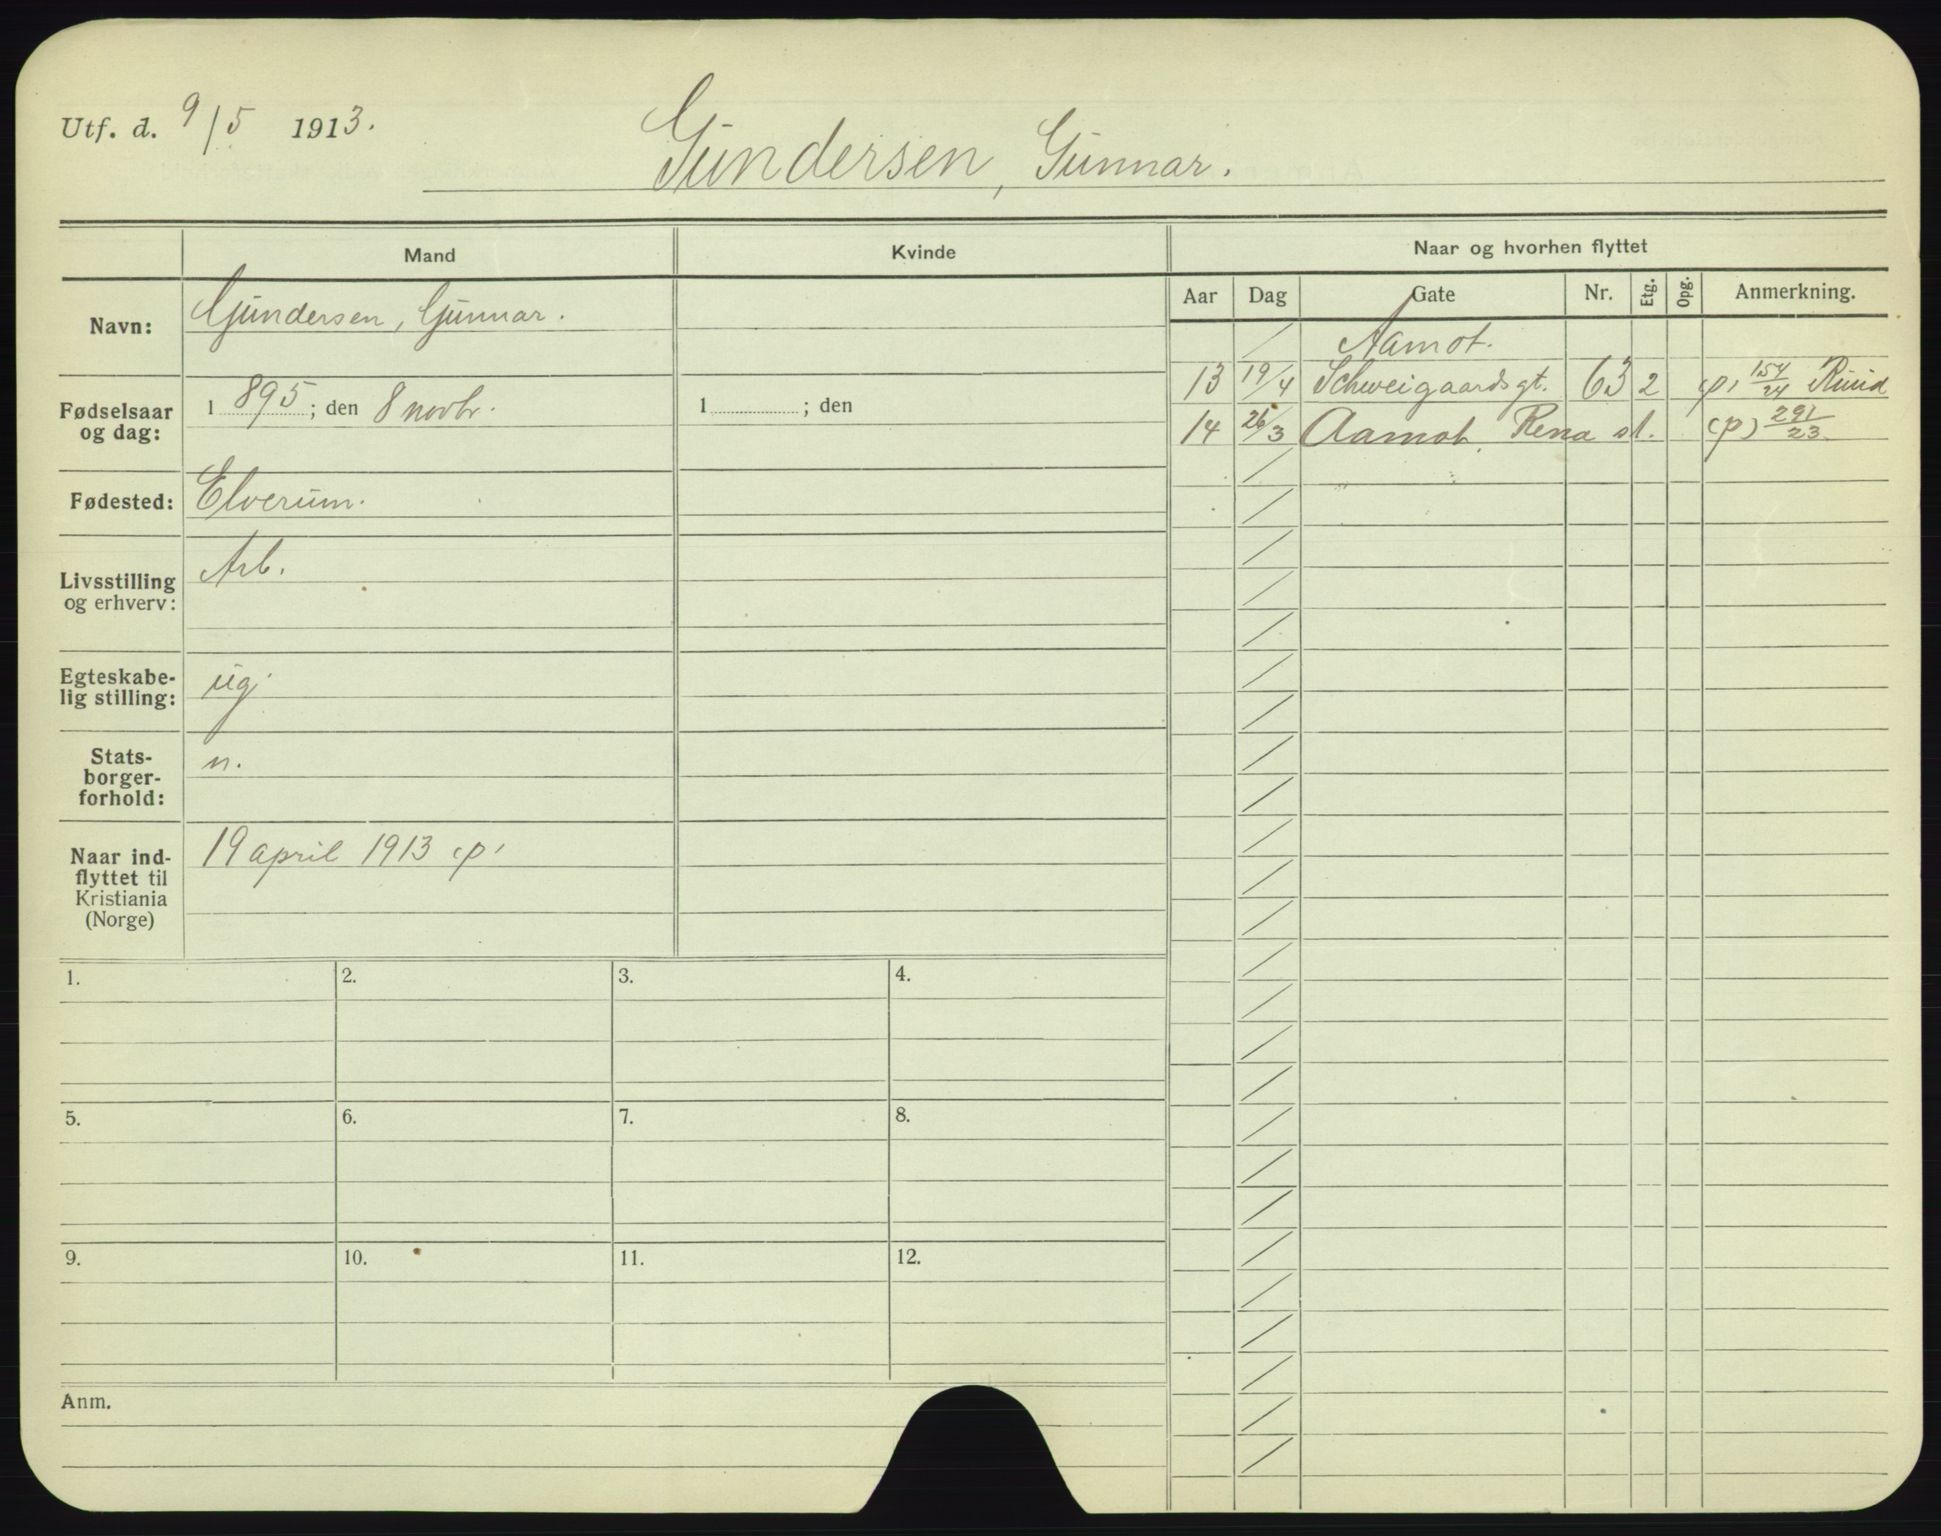 Utf. d. 9/5 1913.
Gundersen, Gunnar.
Mand
Kvinde
Naar og hvorhen flyttet
Aar Dag Gate Nr. Etg. Opg. Anmerkning.
Navn: Gundersen, Gunnar.
Fødselsaar og dag: 1895; den 8 novbr.
1 ; den
Fødested: Elverum.
Livsstilling og erhverv: Arb.
Egteskabe-
lig stilling: ug.
Stats-
borger-
forhold: n.
Naar ind-
flyttet til
Kristiania
(Norge) 19 april 1913 (p)
Aamot.
13 19/4 Schweigaards gt. 63 2 (p) 154/24 Ruud
14 26/3 Aamot, Rena st. (p) 291/23
1. 2. 3. 4.
5. 6. 7. 8.
9. 10. 11. 12.
Anm.